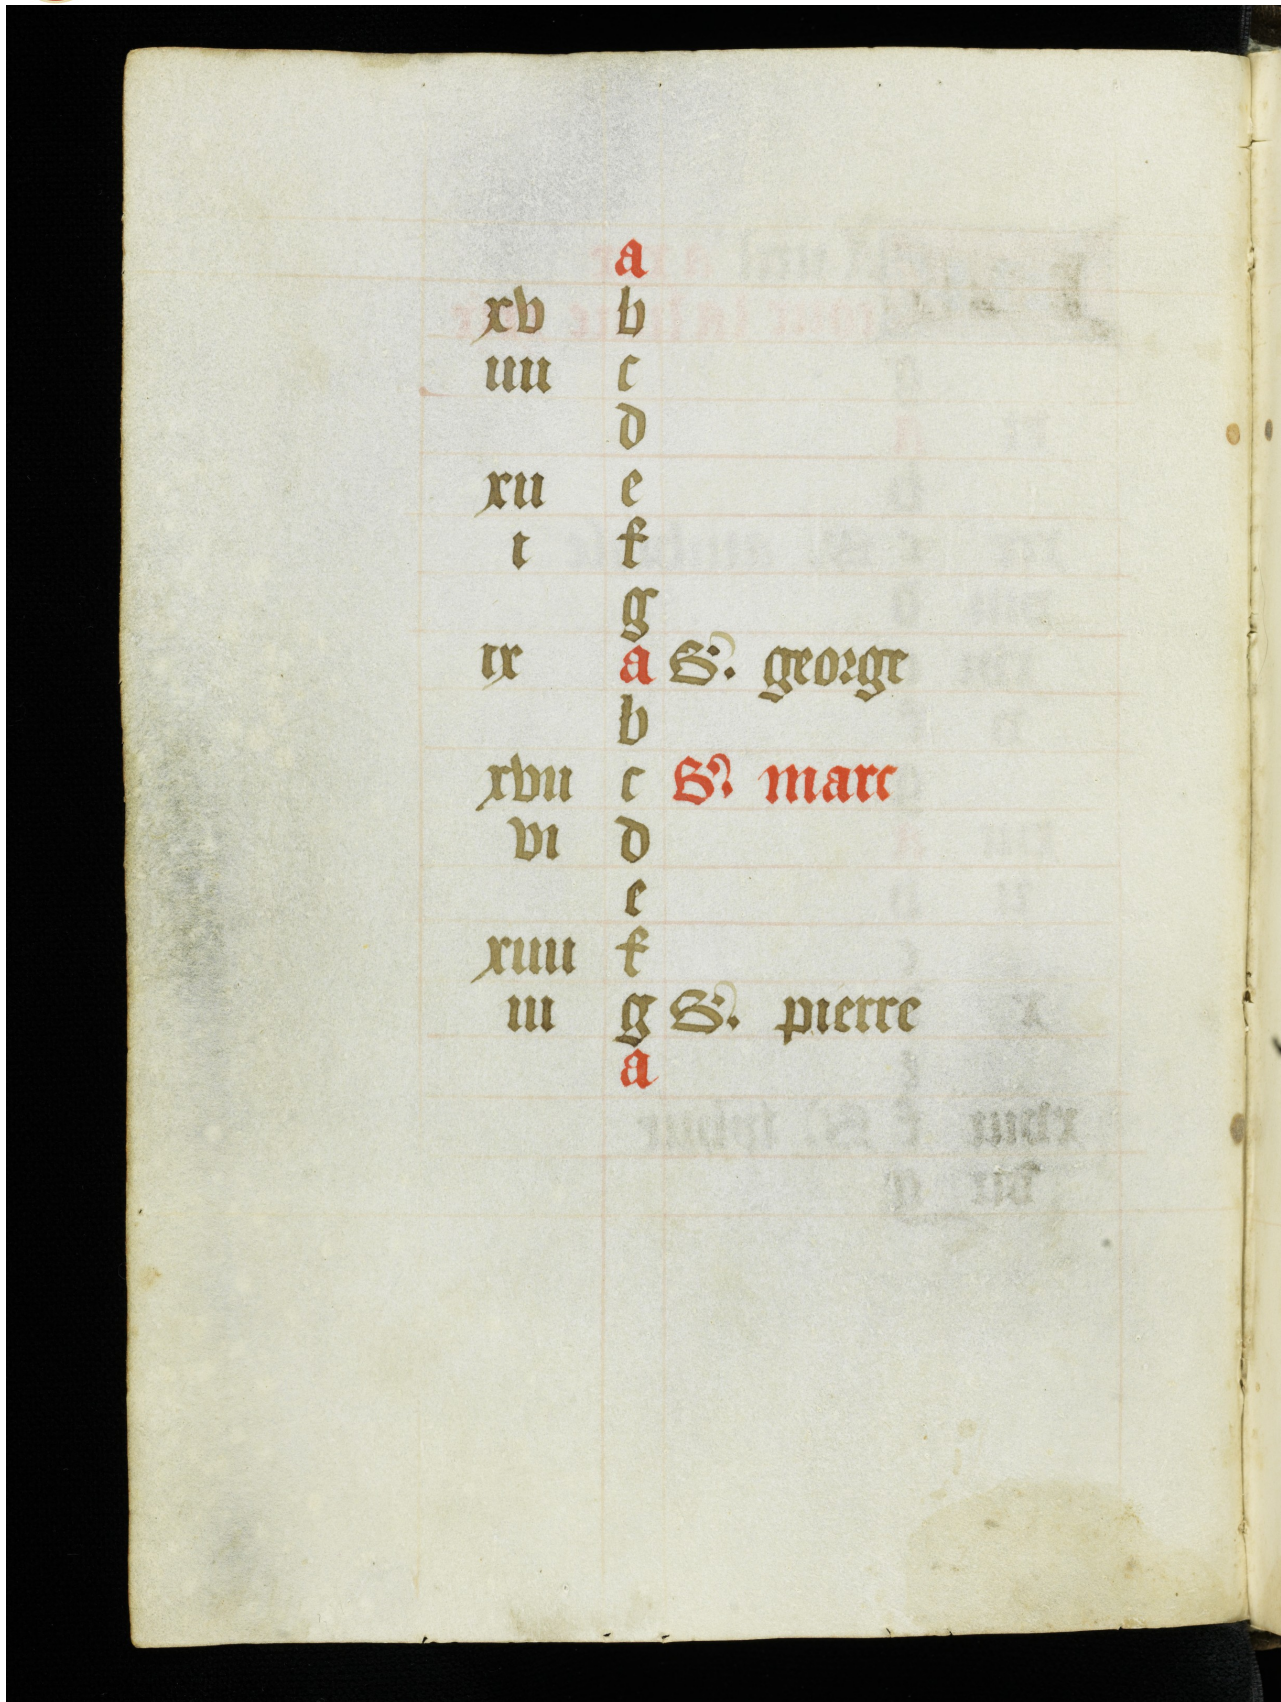 a
xv b
iiii c
d
xii e
i f
g
ix a S. george
b
xvii c S. marc
vi d
e
xiiii f
iii g S. pierre
a